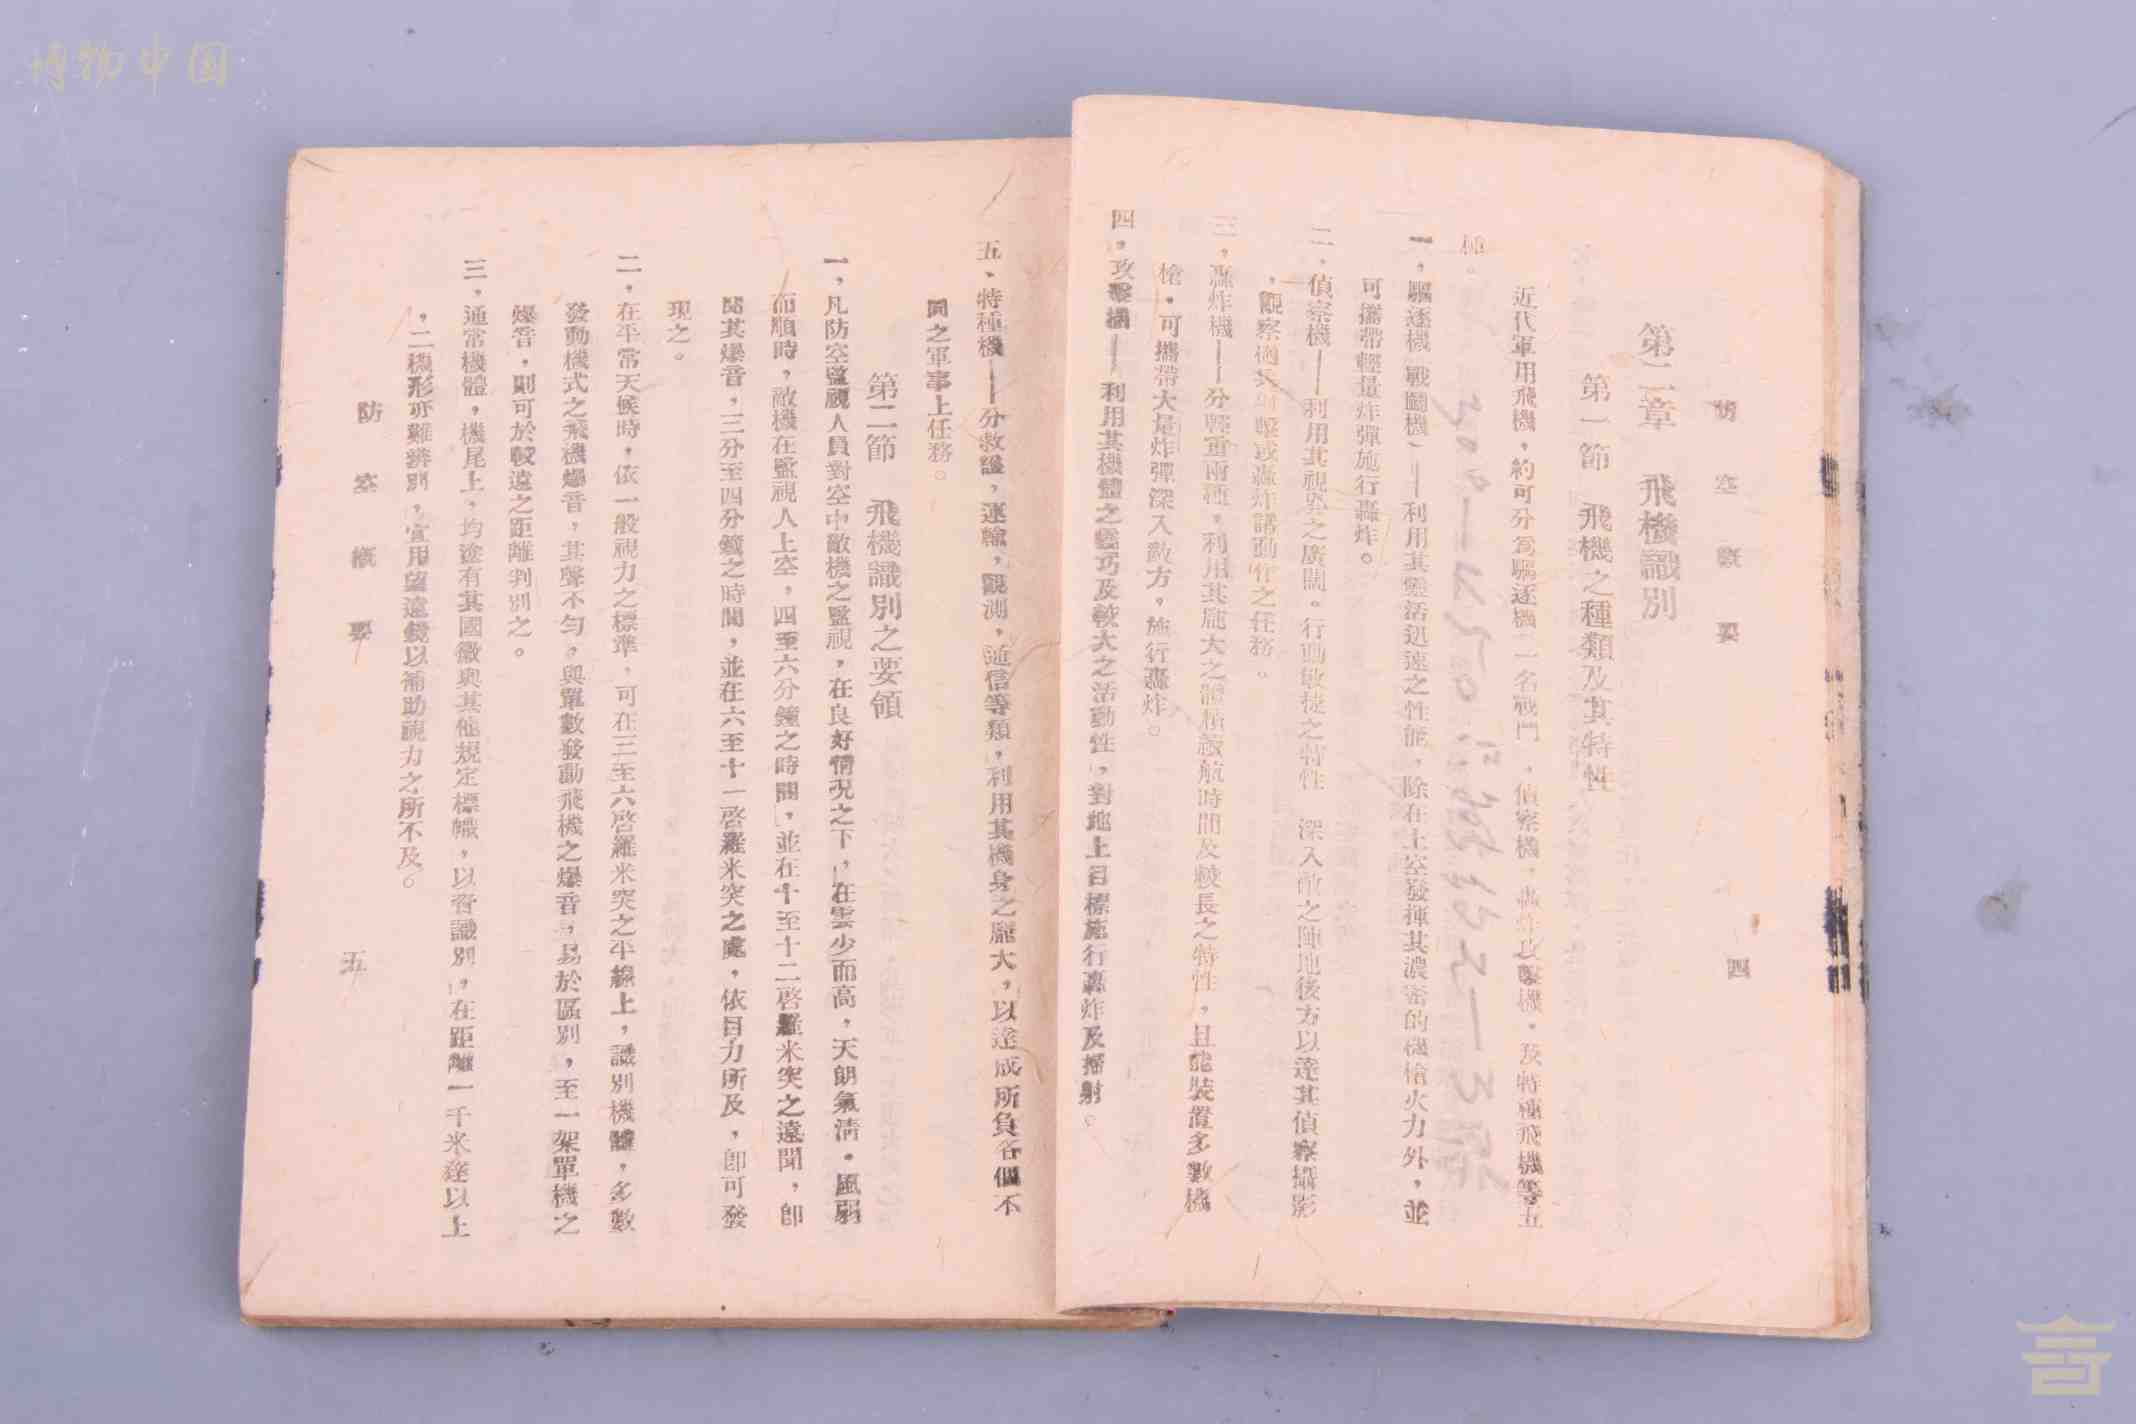 博物中国
防空概要
四
第二章　飛機識別
第一節　飛機之種類及其特性
近代軍用飛機，約可分爲驅逐機（一名戰鬥），偵察機，轟炸攻擊機，及特種飛機等五
種。
一，驅逐機（戰鬭機）——利用其靈活迅速之性能，除在上空發揮其濃密的機槍火力外，並
可攜帶輕量炸彈施行轟炸。
二，偵察機——利用其視界之廣闊。行動敏捷之特性　深入敵之陣地後方以達其偵察攝影
，觀察　　射擊或轟炸諸動作之任務。
三，轟炸機——分輕重兩種，利用其龐大之體積，航時間及較長之特性，且能裝置多數機
槍。可攜帶大量炸彈深入敵方，施行轟炸。
四，攻擊機——利用其機體之輕巧及較大之活動性，對地上目標施行轟炸及掃射。
五、特種機——分救護，運輸，觀測，通信等類，利用其機身之龐大，以達成所負各個不
同之軍事上任務。
第二節　飛機識別之要領
一，凡防空監視人員對空中敵機之監視，在良好情況之下，在雲少而高，天朗氣清。風弱
而順時，敵機在監視人上空，四至六分鐘之時間，並在十至十二啓羅米突之遠聞，卽
聞其爆音，三分至四分鐘之時間，並在六至十一啓羅米突之處，依目力所及，卽可發
現之。
二，在平常天候時，依一般視力之標準，可在三至六啓羅米突之平線上，識別機體，多數
發動機式之飛機爆音，其聲不勻。與單數發動飛機之爆音，易於區別，至一架單機之
爆音，則可於較遠之距離判別之。
三，通常機體，機尾上，均塗有其國徽與其他規定標幟，以資識別，在距離一千米達以上
，二機形亦難辨別，宜用望遠鏡以補助視力之所不及。
防空概要
五